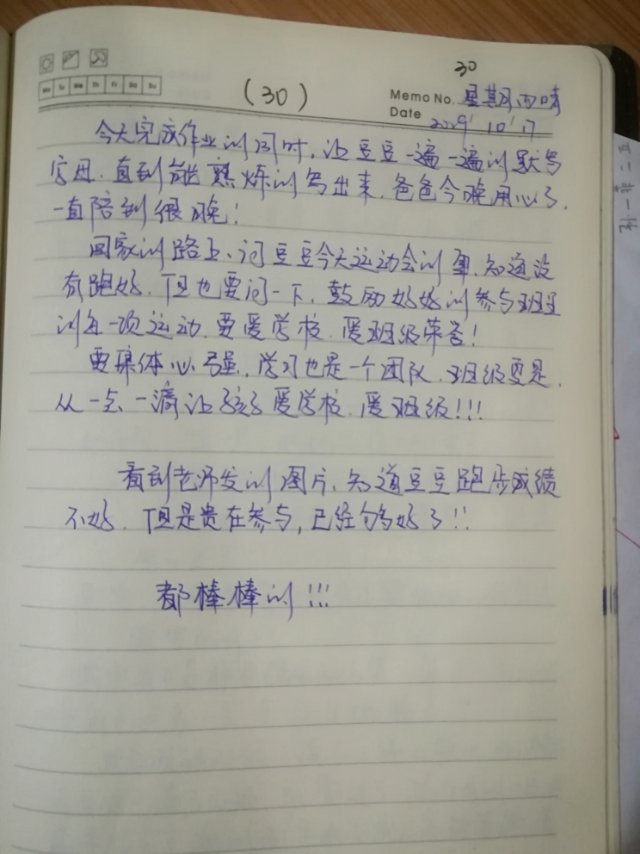 30
(30)
Mo Tu We Th Fr Sa Su
Memo No. 星期四 晴
Date 2019' 10' 17
今天完成作业的同时,让豆豆一遍一遍的默写
字母,直到能熟炼的写出来,爸爸今晚用心了,
一直陪到很晚!
回家的路上,问豆豆今天运动会的事,知道没
有跑好,但也要问一下,鼓励好好的参与班里
的每一项运动,要爱学校,爱班级荣誉!
要集体心强,学习也是一个团队,班级更是,
从一点一滴让孩子爱学校,爱班级!!!
看到老师发的图片,知道豆豆跑步成绩
不好,但是贵在参与,已经够好了!!
都棒棒的!!!